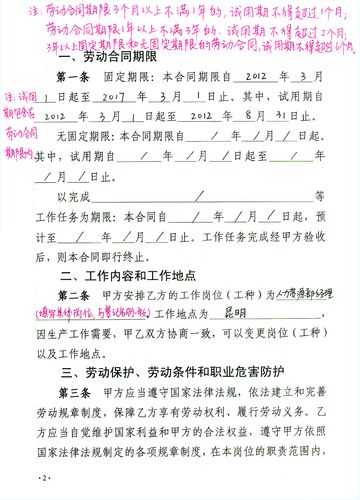 注：劳动合同期限3个月以上不满1年的，试用期不得超过1个月；
劳动合同期限1年以上不满3年的，试用期不得超过2个月；
3年以上固定期限和无固定期限的劳动合同，试用期不得超过6个月。
一、劳动合同期限
第一条 固定期限：本合同期限自 2012 年 3 月
注：试用
1 日起至 2017 年 3 月 1 日止。其中，试用期自
期包含在
2012 年 3 月 1 日起至 2012 年 8 月 31 日止。
劳动合同
无固定期限：本合同期限自 / 年 / 月 / 日起。
期限内
其中，试用期自 / 年 / 月 / 日起至 / 年
/ 月 / 日止。
以完成 / 等
工作任务为期限：本合同自 / 年 / 月 / 日起，预
计至 / 年 / 月 / 日止。工作任务完成经甲方验收
后，则本合同即行终止。
二、工作内容和工作地点
第二条 甲方安排乙方的工作岗位（工种）为 人力资源部经理
（填写具体岗位，与登记名册一致）工作地点为 昆明 ，
因生产工作需要，甲乙双方协商一致，可以变更岗位（工种）
以及工作地点。
三、劳动保护、劳动条件和职业危害防护
第三条 甲方应当遵守国家法律法规，依法建立和完善
劳动规章制度，保障乙方享有劳动权利、履行劳动义务。乙
方应当自觉维护国家利益和甲方的合法权益，遵守甲方依照
国家法律法规制定的各项规章制度，在本岗位的职责范围内，
·2·